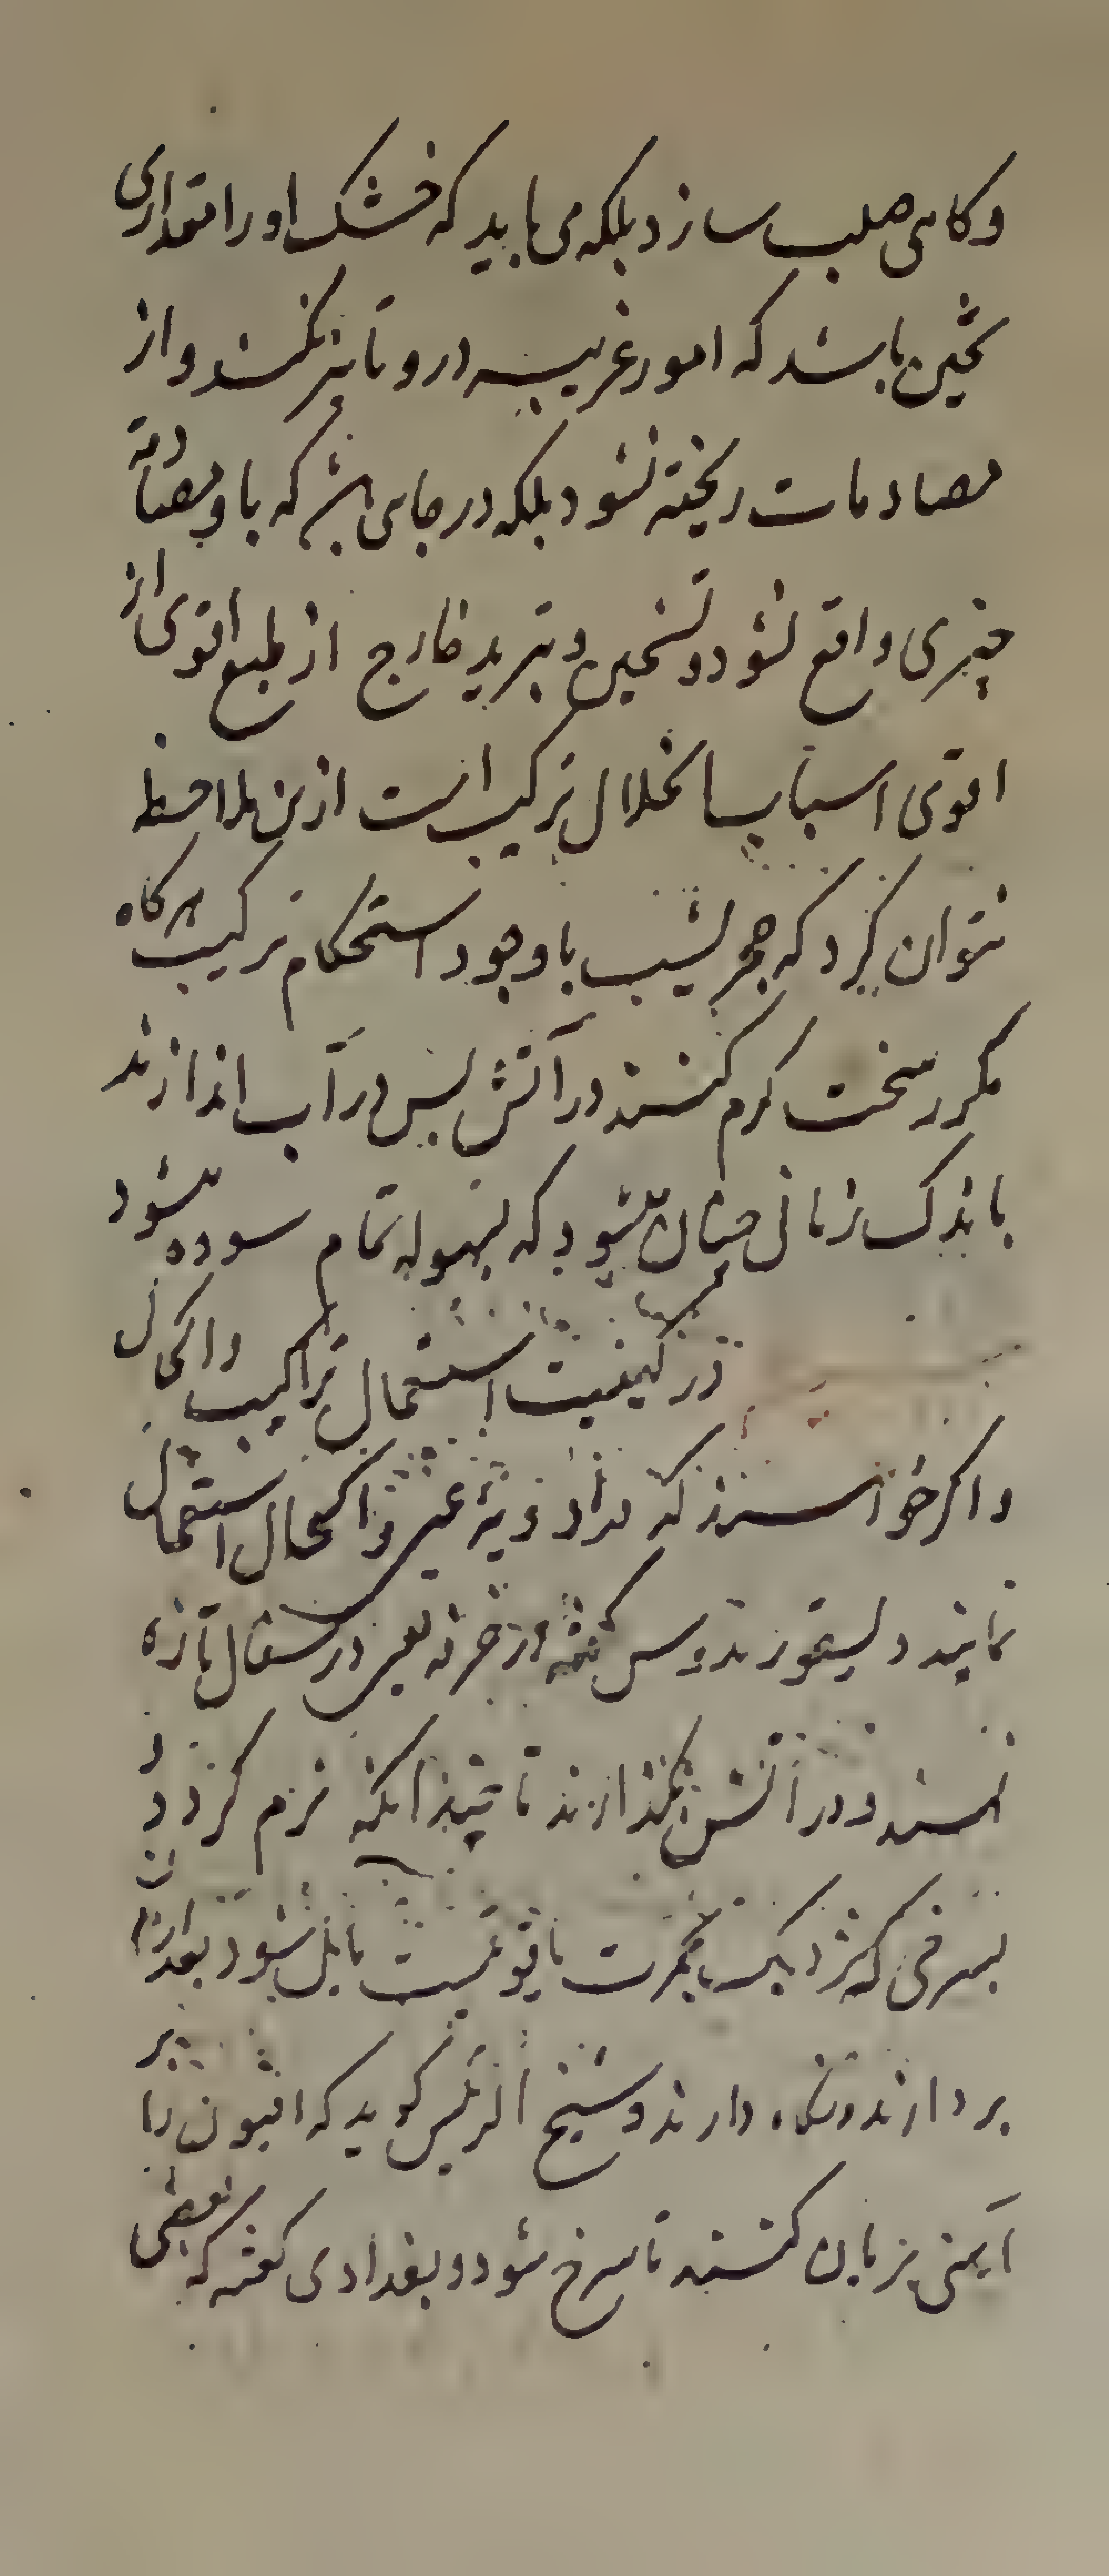 و کاهی صلب سازد بلکه می باید که خشک او را مقداری
چنین باشد که امور غریبه درو تاثیر نکند و از
مصادمات ریخته نشود بلکه در جای باشد که با و مصادمه
چیزی واقع نشود و تسخین و تبرید خارج از طبع اقوی از
اقوی اسباب انحلال ترکیب است ازین ملاحظه
نتوان کرد که حجر یشب با وجود استحکام ترکیب هرکاه
مکرر سخت کرم کنند در آتش پس در آب اندازند
باندک زمانی چنان میشود که بسهوله تمام سوده میشود
در کیفیت استعمال تراکیب و اکحال
و اکر خواستند که در ادویه عین و اکحال استعمال
نمایند دیسقوریدوس کفته از خزفه یعنی در سفال تازه
نهند و در آتش بکذارند تا چندانکه نرم کردد و
بسرخی که نزدیک بحمرت یاقوتیست مایل شود بعد ازان
بر دارند و نکاه دارند و شیخ الرئیس کوید که افیون را بر
آهنی بریان کنند تا سرخ شود و بغدادی کفته که بعضی